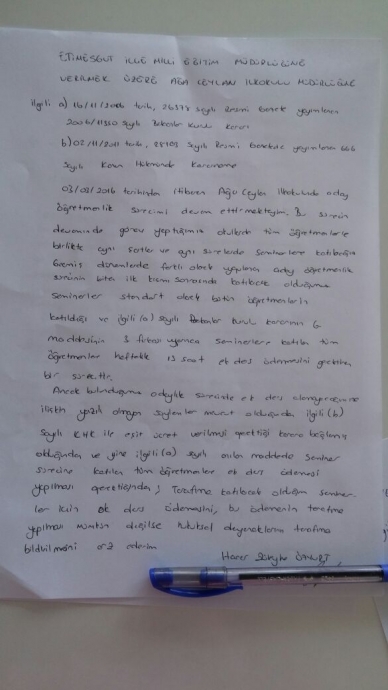 ETİMESGUT İLÇE MİLLİ EĞİTİM MÜDÜRLÜĞÜNE
VERİLMEK ÜZERE AĞA CEYLAN İLKOKULU MÜDÜRLÜĞÜNE
ilgili a) 16/11/2006 tarih, 26378 sayılı Resmi yayımlanan
2006/11350 sayılı Bakanlar Kurulu kararı
b) 02/11/2011 tarih, sayılı Resmi yayımlanan 666
sayılı Kanun Hükmünde Kararname
03/02/2016 tarihinden itibaren Ağa Ceylan ilkokulunda aday
öğretmenlik sürecimi devam ettirmekteyim. Bu sürecin
devamında görev yaptığımız okullarda tüm öğretmenlerle
birlikte aynı saatler ve aynı sürelerde seminerlere katılacağız
Geçmiş dönemlerde farklı olarak yapılan aday öğretmenlik
sürecinin biten ilk kısmı sonrasında katılacak olduğumuz
seminerler standart olarak bütün öğretmenlerin
katıldığı ve ilgili (a) sayılı Bakanlar Kurul kararının 6
maddesinin 3 fıkrası uyarınca seminerlere katılan tüm
öğretmenler haftalık 15 saat ek ders ödemesini gerektiren
bir süreçtir.
Ancak bulunduğumuz adaylık sürecinde ek ders
ilişkin yazılı olmayan söylemler mevcut olduğundan, ilgili (b)
sayılı KHK ile eşit ücret verilmesi gerektiği karara bağlanmış
olduğundan ve yine ilgili (a) sayılı maddede seminer
sürecine katılan tüm öğretmenlere ek ders ödemesi
yapılması gerektiğinden; Tarafıma katılacak olduğum seminer-
ler için ek ders ödemesini, bu ödemenin tarafıma
yapılması mümkün değilse hukuksal dayanakların tarafıma
bildirilmesini arz ederim